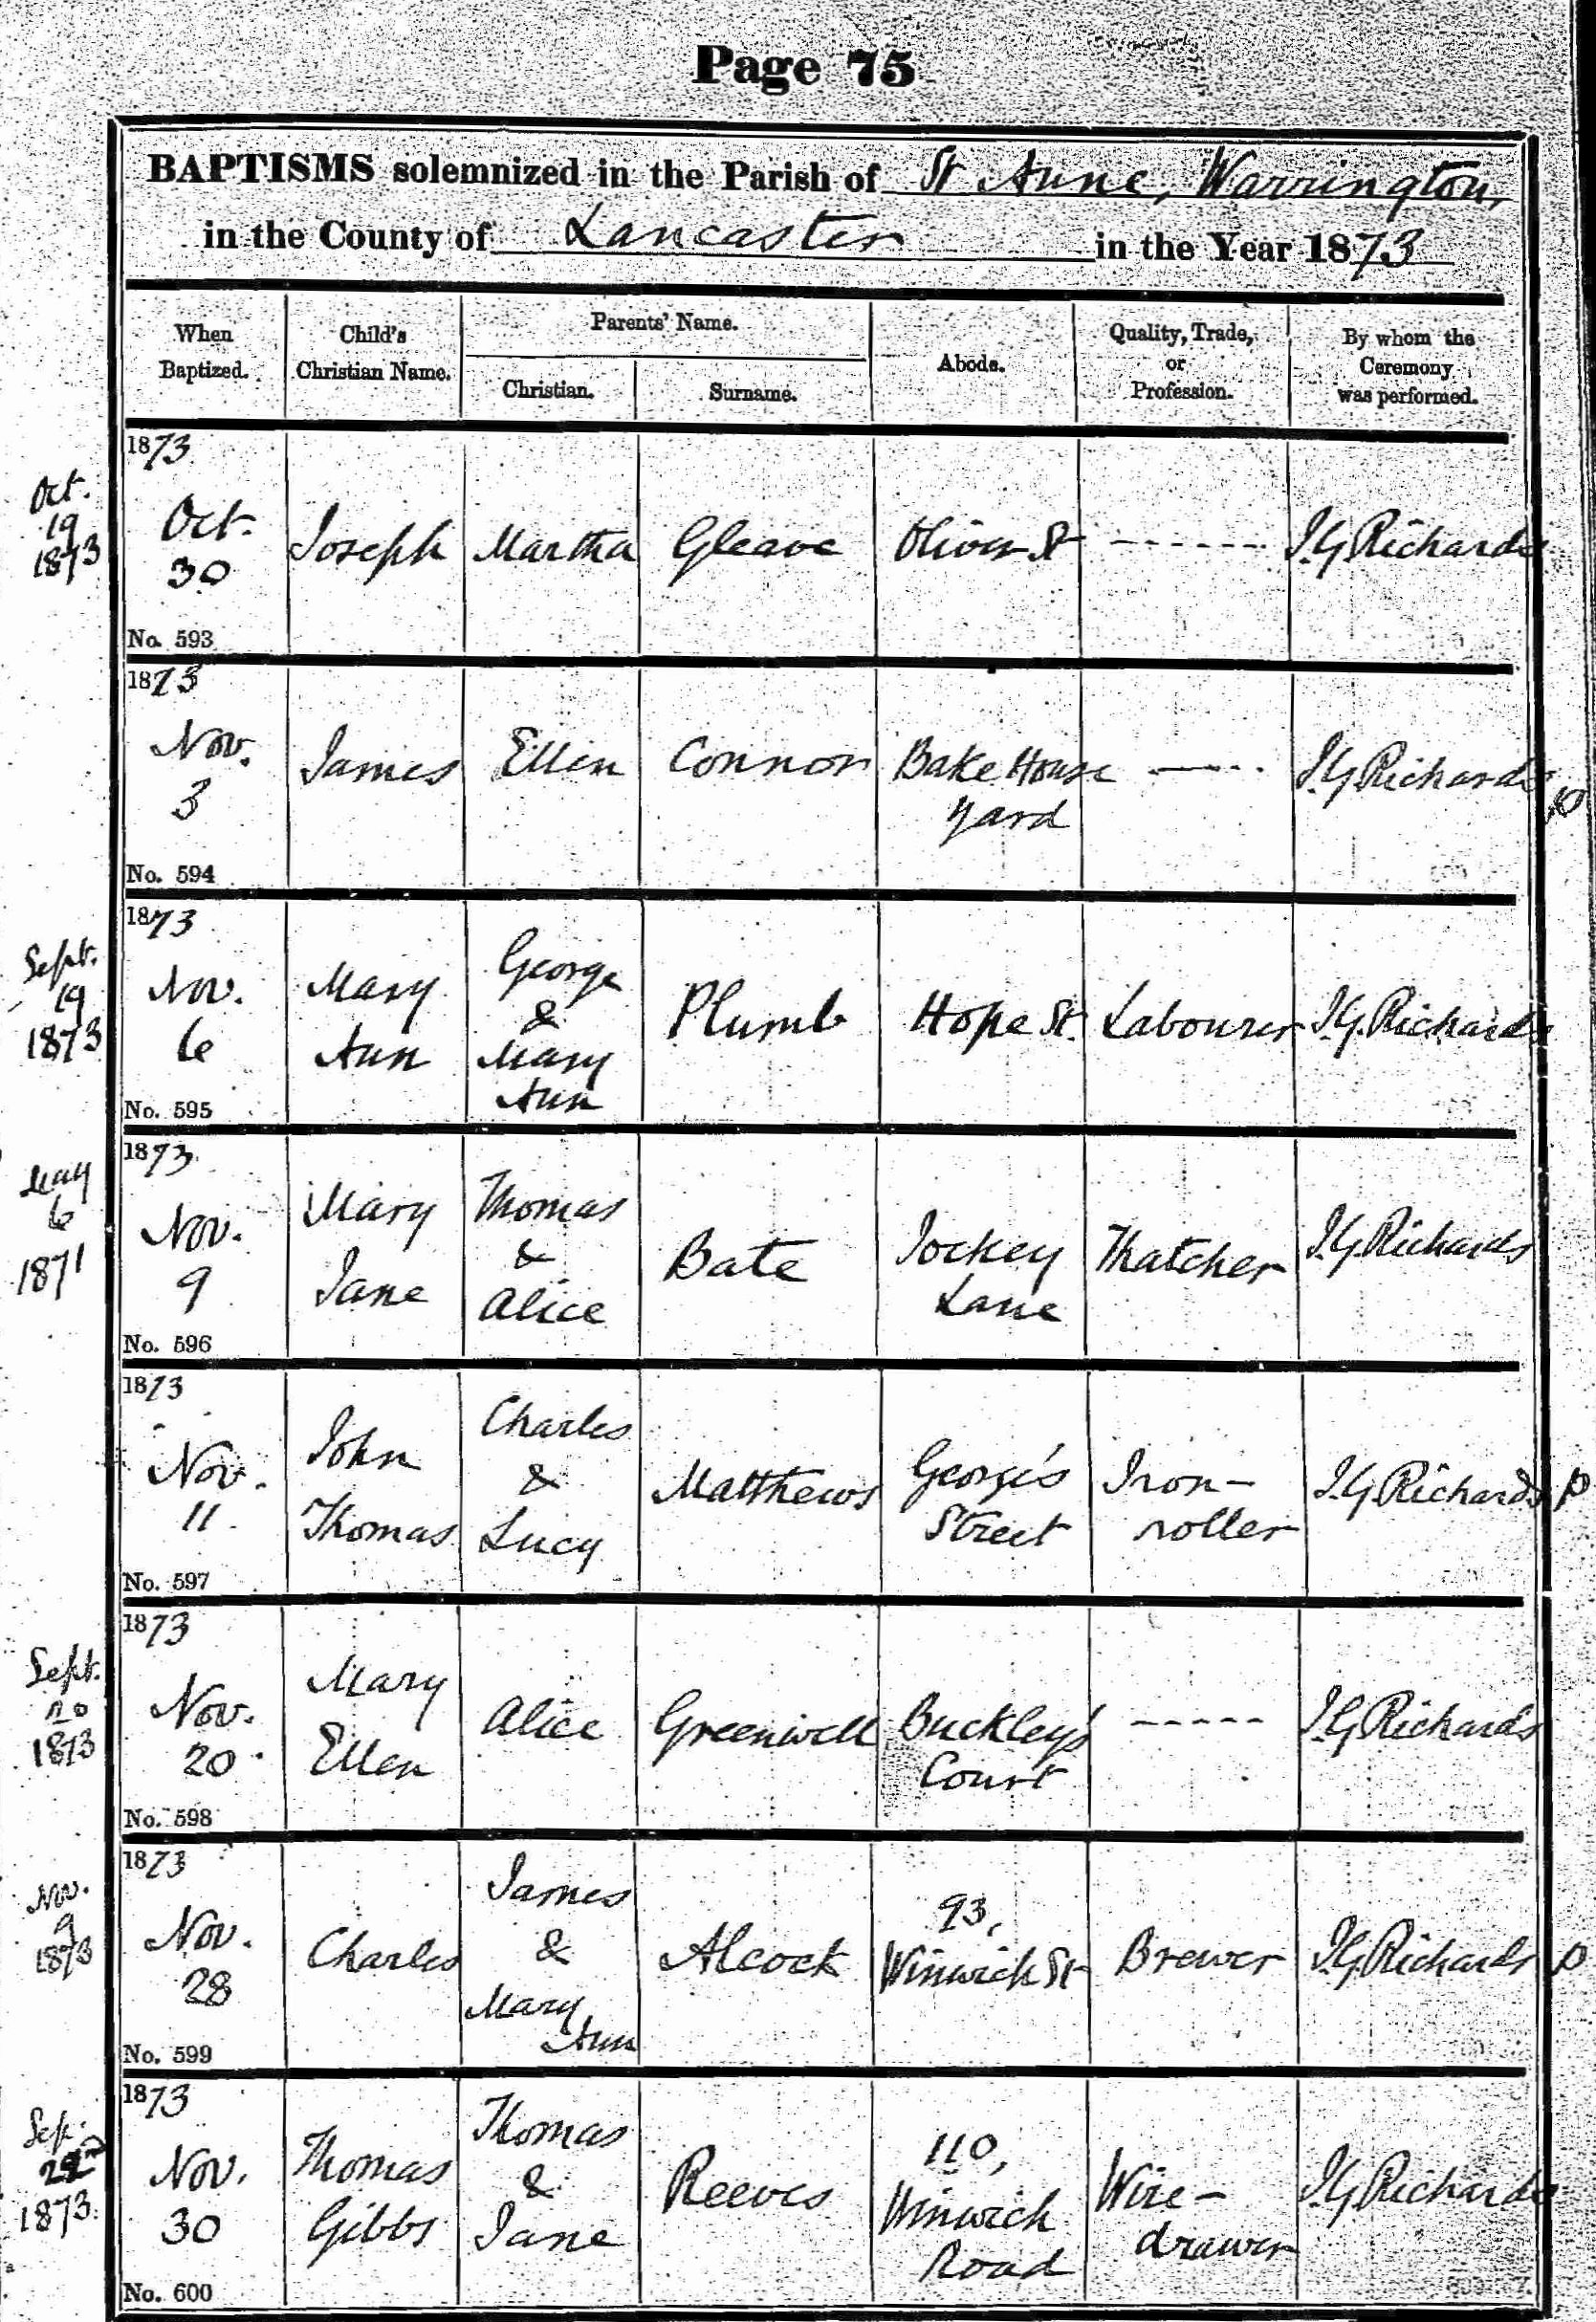 Page 75
BAPTISMS solemnized in the Parish of St Anne, Warrington,
in the County of Lancaster in the Year 1873
When Baptized.
Child's Christian Name.
Parents' Name.
Christian.
Surname.
Abode.
Quality, Trade, or Profession.
By whom the Ceremony was performed.
Oct. 19 1873
1873
Oct. 30
Joseph
Martha
Gleave
Oliver St
J.G Richards
No. 593
1873
Nov. 3
James
Ellen
Connor
Bake House
Yard
J.G Richards
p
No. 594
Sept. 19 1873
1873
Nov. 6
Mary
Ann
George
&
Mary
Ann
Plumb
Hope St.
Labourer
J.G. Richards
No. 595
May 6 1871
1873
Nov. 9
Mary
Jane
Thomas
&
Alice
Bate
Jockey
Lane
Thatcher
J.G. Richards
No. 596
1873
Nov. 11
John
Thomas
Charles
&
Lucy
Matthews
George's
Street
Iron-
roller
J.G. Richards
p
No. 597
Sept. 20 1873
1873
Nov. 20
Mary
Ellen
Alice
Greenwell
Buckley's
Court
J.G Richards
No. 598
Nov. 9 1873
1873
Nov. 28
Charles
James
&
Mary
Ann
Alcock
93,
Winwick St
Brewer
J.G. Richards
p
No. 599
Sep. 1873
1873
Nov. 30
Thomas
Gibbs
Thomas
&
Jane
Reeves
110,
Winwick
Road
Wire-
drawer
J.G Richards
No. 600